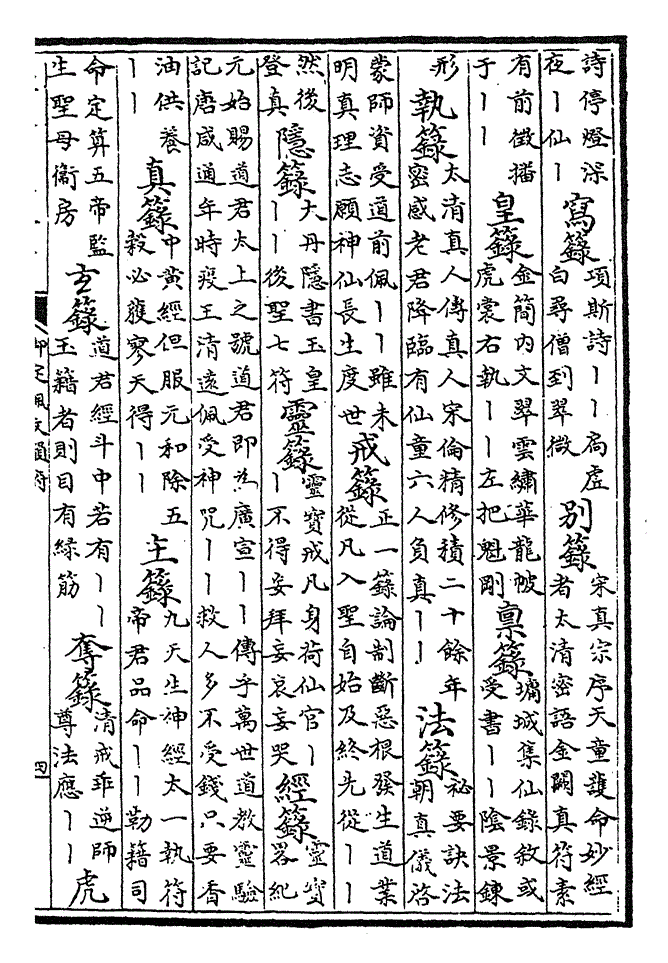 詩停燈深
夜｜仙｜
寫籙
項斯詩｜｜扃虛
白尋僧到翠微
別籙
宋真宗序天童護命妙經
者太清密語金闕真符素
有前徵擂
于｜｜
皇籙
金簡內文翠雲繡華龍帔
虎裳右執｜｜左把魁剛
禀籙
墉城集仙錄敘或
受書｜｜陰景鍊
形
執籙
太清真人傳真人宋倫精修積二十餘年
密感老君降臨有仙童六人負真｜｜
法籙
祕要訣法
朝真儀啓
蒙師資受道前佩｜｜雖未
明真理志願神仙長生度世
戒籙
正一籙論制斷惡根發生道業
從凡入聖自始及終先從｜｜
然後
登真
隱籙
大丹隱書玉皇
｜｜後聖七符
靈籙
靈寶戒凡身荷仙官｜
｜不得妄拜妄哀妄哭
經籙
靈寶
畧紀
元始賜道君太上之號道君即爲廣宣｜｜傳乎萬世道教靈驗
記唐咸通年時疫王清遠佩受神咒｜｜救人多不受錢只要香
油供養
｜｜
真籙
中黃經但服元和除五
穀必獲寥天得｜｜
主籙
九天生神經太一執符
帝君品命｜｜勒籍司
命定算五帝監
生聖母衞房
玄籙
道君經斗中若有｜｜
玉籍者則目有綠筋
奪籙
清戒乖逆師
尊法應｜｜
虎
御定佩文韻府
四